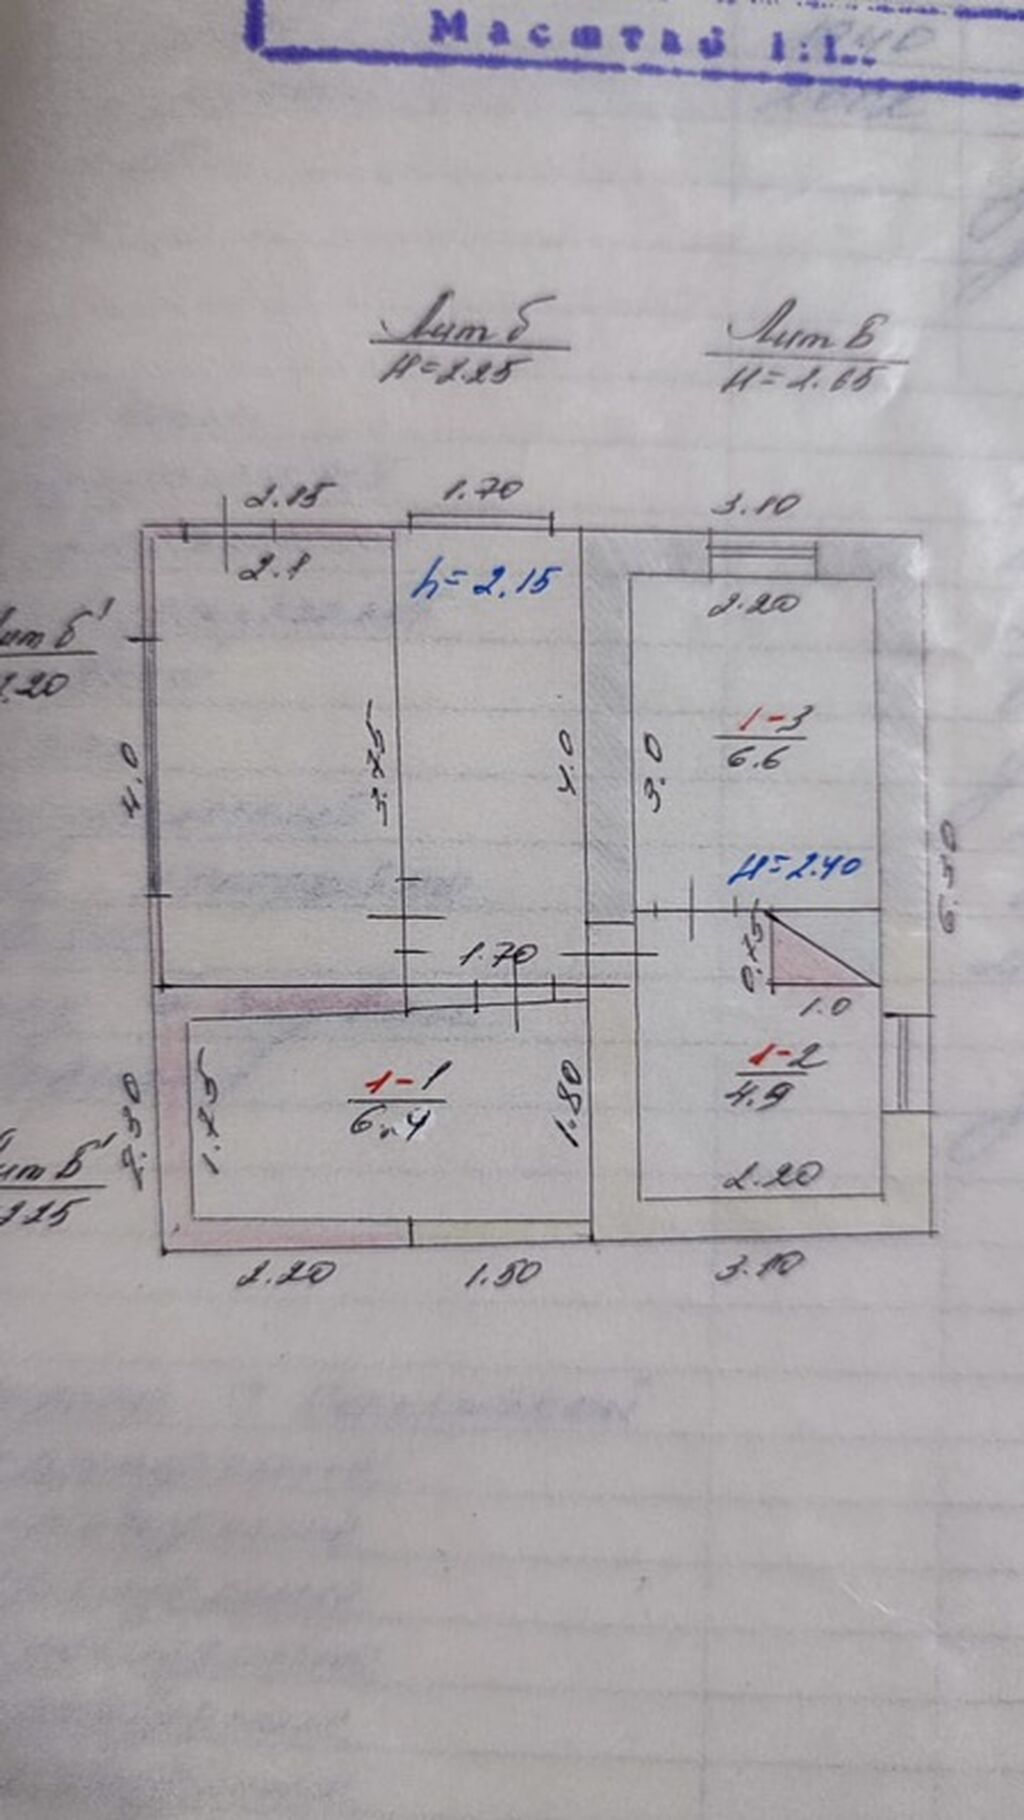 Масштаб 1:1
Лит б
H=2.25
Лит Б
H=2.65
2.15
1.70
3.10
2.1
h=2.15
2.20
Лит Б'
2.20
1-3
6.6
4.0
3.75
4.0
3.0
H=2.40
6.50
1.70
0.75
1.0
1-2
4.9
1-1
6.4
2.30
1.75
1.80
Лит Б'
2.25
2.20
2.20
1.50
3.10